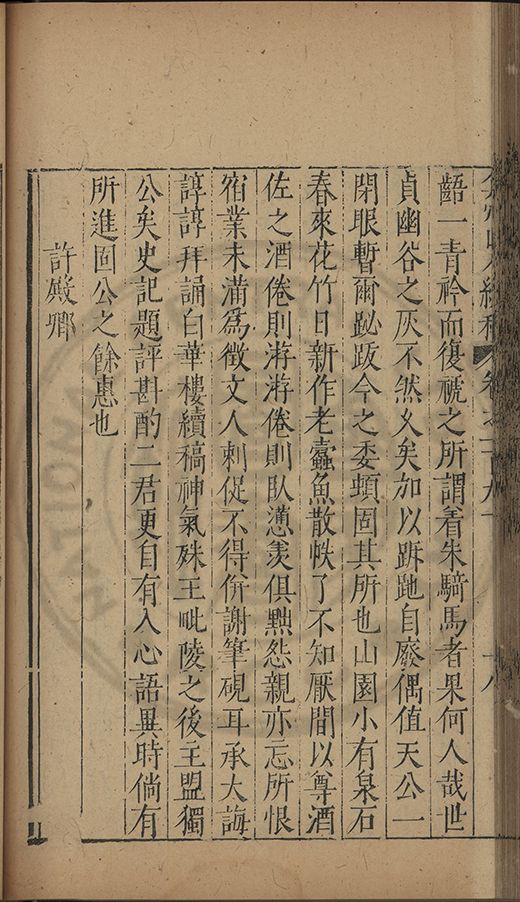 弇州山人續稿 卷之一百九十 十八
齬一青衿而復褫之所謂着朱騎馬者果何人哉世
貞幽谷之灰不然久矣加以跅跑自廢偶值天公一
閉眼暫爾跋䟦今之委頓固其所也山園小有泉石
春來花竹日新作老蠹魚散帙了不知厭間以尊酒
佐之酒倦則游游倦則臥憊羨俱黜怨親亦忘所恨
宿業未滿爲徵文人刺促不得併謝筆硯耳承大誨
諄諄拜誦白華樓續稿神氣殊王毗陵之後主盟獨
公矣史記題評斟酌二君更自有入心語異時倘有
所進固公之餘惠也
許殿卿